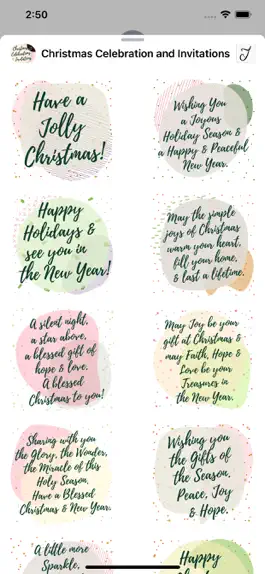 2:50
Christmas Celebration and Invitations
Have a
Jolly
Christmas!
Wishing You
a Joyous
Holiday Season &
a Happy & Peaceful
New Year.
Happy
Holidays &
see you in
the New Year!
May the simple
joys of Christmas
warm your heart,
fill your home,
& last a lifetime.
A silent night,
a star above,
a blessed gift of
hope & love.
A blessed
Christmas to you!
May Joy be your
gift at Christmas &
may Faith, Hope &
Love be your
Treasures in
the New Year.
Sharing with you
the Glory, the Wonder,
the Miracle of this
Holy Season,
Have a Blessed
Christmas & New Year.
Wishing you
the Gifts of
the Season,
Peace, Joy
& Hope.
A little more
Sparkle,
Happy